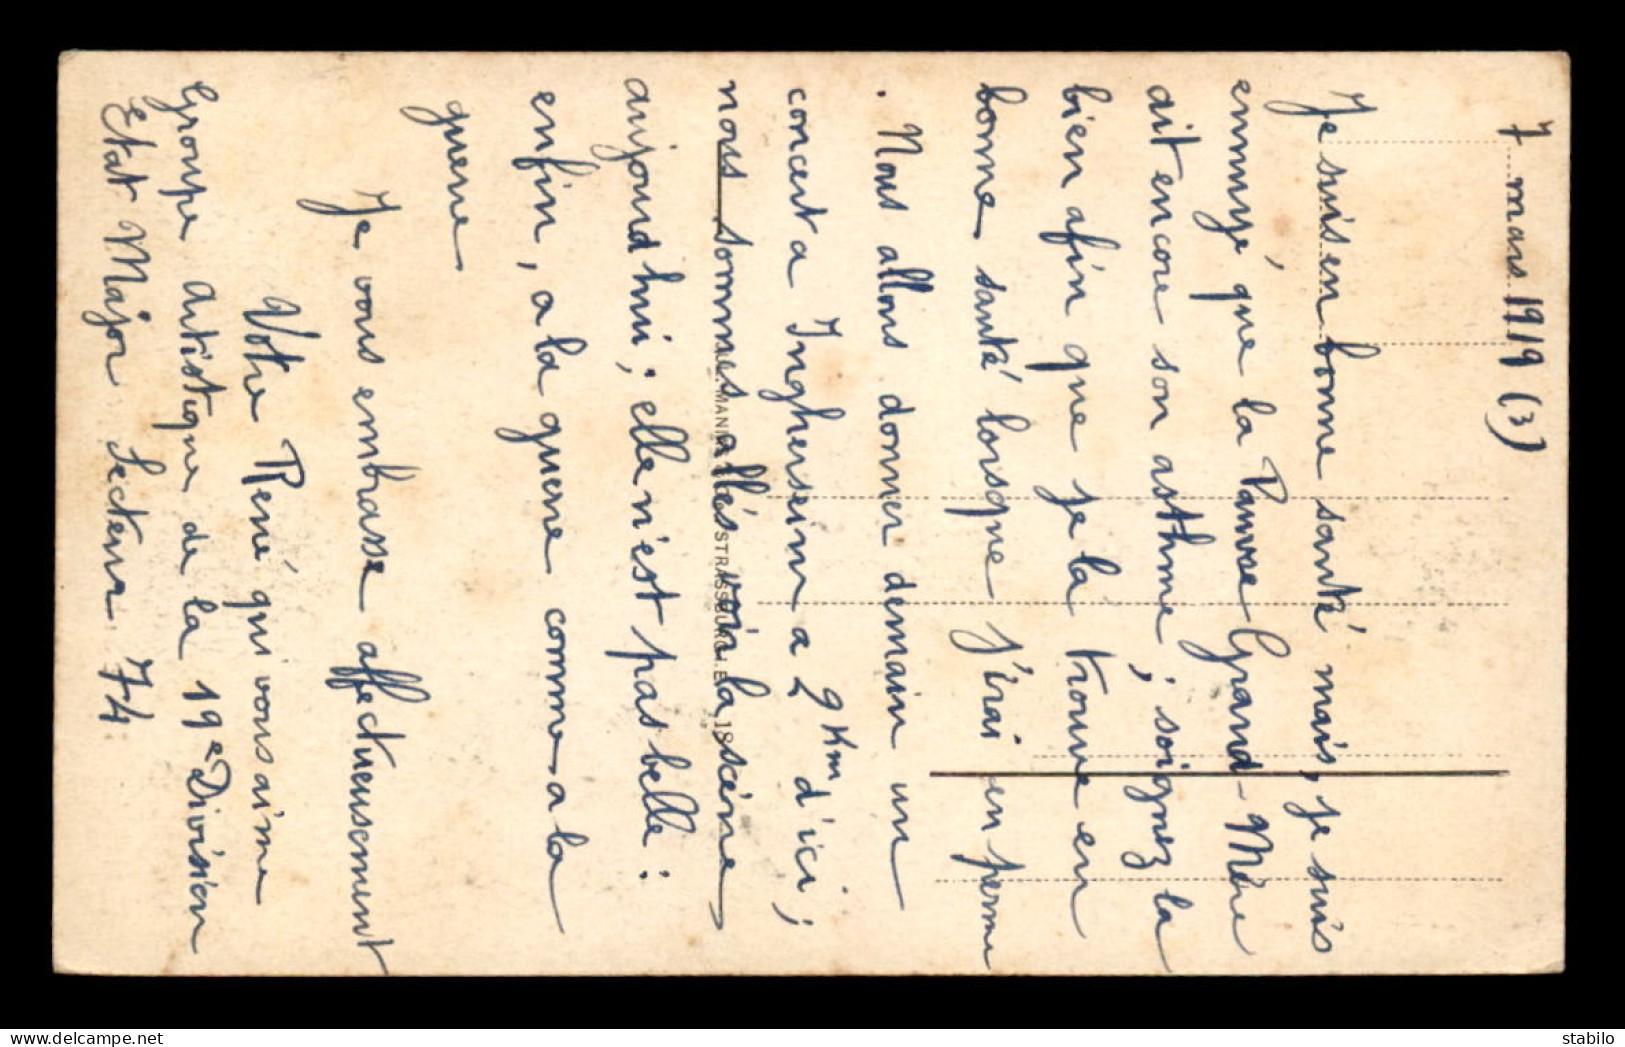 7 mars 1919 (3)
Je suis en bonne santé mais, je suis
ennuyé que la Pauvre Grand-Mère
ait encore son asthme ; soignez la
bien afin que je la trouve en
bonne santé lorsque j'irai en perme
. Nous allons donner demain un
concert a Ingherseim a 2 Km d'ici ;
nous sommes allés voir la scène
aujourd hui ; elle n'est pas belle :
enfin, a la guerre comme a la
guerre
Je vous embrasse affectueusement
Votre René qui vous aime
Groupe Artistique de la 19e Division
Etat Major Secteur 74
STRASSBURG I.E. 18
stabilo